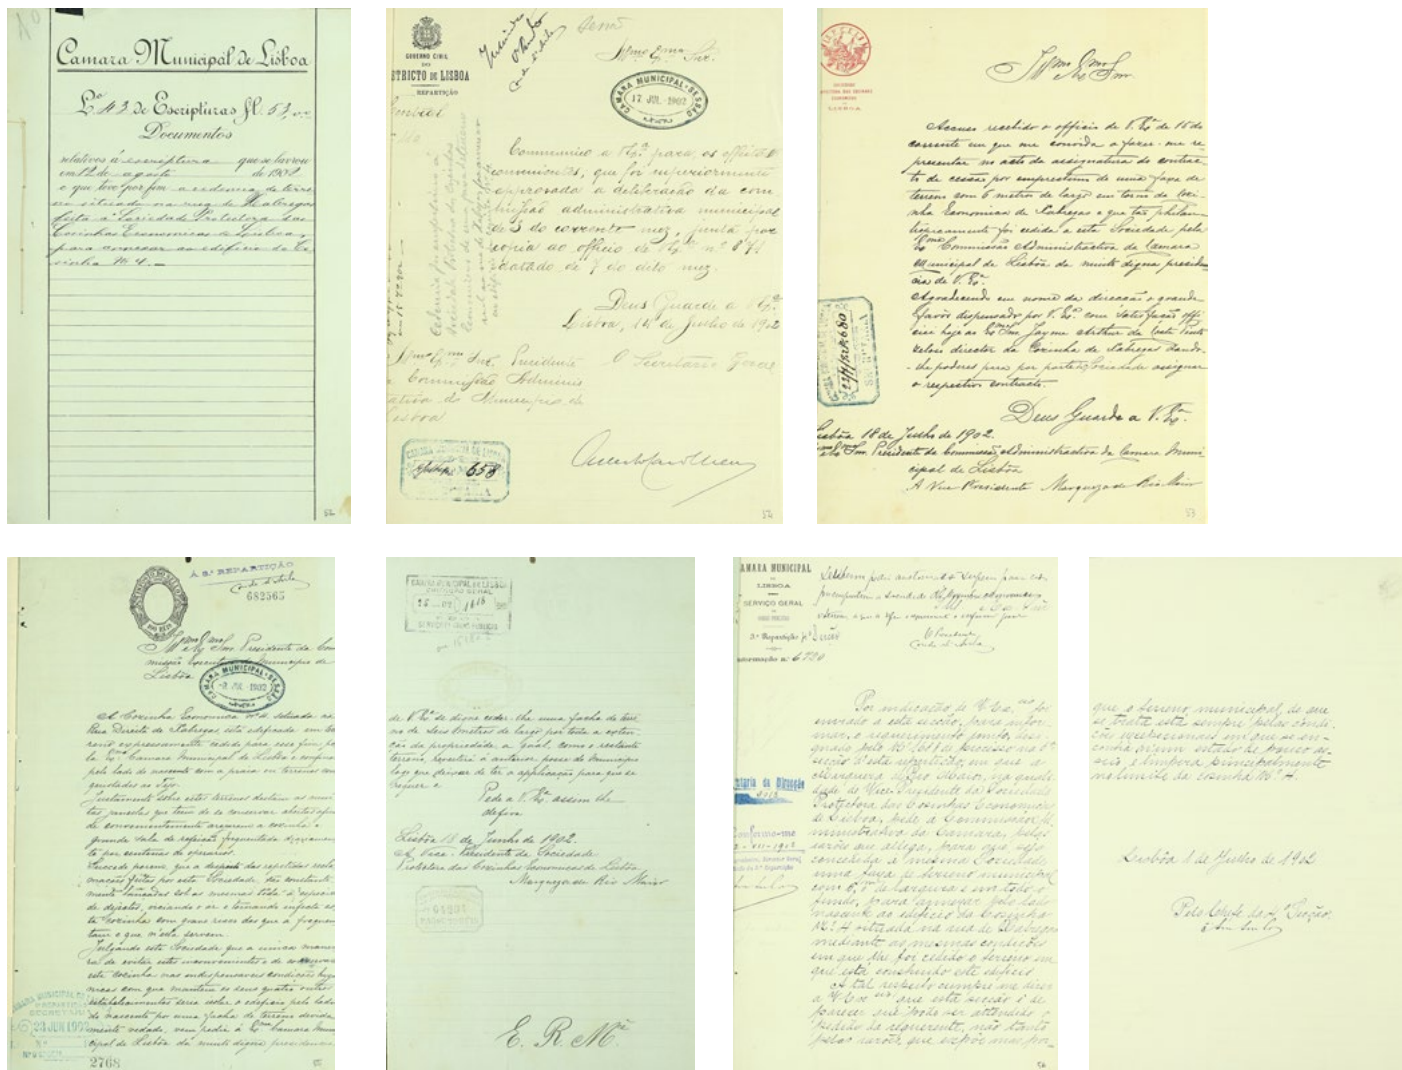 Camara Municipal de Lisboa
Lº 43 de Escripturas fl. 53, vº
Documentos
relativos á escriptura que se lavrou
em 12 de agosto de 1902
e que teve por fim a cedencia de terre-
no situado na rua de Xabregas
feita á Sociedade Protectora das
Cosinhas Economicas de Lisboa,
para annexar ao edificio da Co-
sinha Nº 4.
52
GOVERNO CIVIL
DO
STRICTO DE LISBOA
REPARTIÇÃO
Illmo Exmo Snr.
CAMARA MUNICIPAL - SESSÃO
17 JUL. 1902
Communico a V. Exª para os effeitos
convenientes, que foi superiormente
approvada a deliberação da com
missão administrativa municipal
de 3 do corrente mez, junta por
copia ao officio de V. Exª nº 871
datado de 7 do dito mez.
Deus Guarde a V. Exª
Lisboa, 14 de Julho de 1902
Illmo Exmo Snr. Presidente
da Commissão Adminis
trativa do Municipio de
Lisboa
O Secretario Geral
658
52
LISBOA
Illmo e Exmo Snr.
Accuso recebido o officio de V. Exª de 15 do
corrente em que me convida a fazer-me re-
presentar no acto da assignatura do contrac-
to de cessão por emprestimo de uma faxa de
terreno com 6 metros de largo em torno da Cosi-
nha Economica de Xabregas e que tão philan-
tropicamente foi cedida a esta Sociedade pela
Exma Commissão Administractiva da Camara
Municipal de Lisboa da muito digna presiden-
cia de V. Exª.
Agradecendo em nome da direcção o grande
favôr dispensado por V. Exª com satisfação offi-
ciei hoje ao Exmo Snr Jayme Arthur da Costa Pinto
zeloso director da Cozinha de Xabregas dando-
lhe poderes para por parte da Sociedade assignar
o respectivo contracto.
Deus Guarde a V. Exª.
Lisbôa 18 de Julho de 1902.
Exmo Snr. Presidente da Commissão Administractiva da Camara Muni-
cipal de Lisbôa
A Vice Presidente Marqueza de Rio Maior
680
53
Á 3.ª REPARTIÇÃO
682565
Illmo e Exmo Snr. Presidente da Com-
missão Executiva do Municipio de
Lisbôa
CAMARA MUNICIPAL - SESSÃO
JUL. 1902
A Cozinha Economica nº 4 situada na
Rua Direita de Xabregas, está edificada em ter-
reno expressamente cedido para esse fim, pe-
la Exma Camara Municipal de Lisbôa e confina
pelo lado do nascente com a praia ou terrenos con-
quistados ao Tejo.
Justamente sobre estes terrenos deitam as mui-
tas janellas que teem de se conservar abertas afim
de convenientemente arearem a cozinha e
grande sala de refeição frequentada diariamen-
te por centenas de operarios.
Succede porem que a despeito das repetidas recla-
mações feitas por esta Sociedade, são constante-
mente lançadas sobre os mesmos toda a especie
de dejectos, viciando o ar e tornando infecta es-
ta cozinha com grave risco dos que a frequen-
tam e que n'ella servem.
Julgando esta Sociedade que a unica manei-
ra de evitar estes inconvenientes e de conservar
esta cozinha nas indispensaveis condições hygie-
nicas com que mantem os seus quatro outros
estabelecimentos seria isolar o edificio pelo lado
do nascente por uma facha de terreno devida-
mente vedado, vem pedir á Exma Camara Muni-
cipal de Lisbôa da muito digna presidencia
23 JUN 1902
2768
55
CAMARA MUNICIPAL DE LISBOA
1616
de V. Exª se digne ceder-lhe uma facha de terre
no de seis metros de largo por toda a exten-
ção da propriedade, a qual, como o restante
terreno, reverterá á anterior posse do Municipio
logo que deixar de ter a applicação para que se
requer e
Pede a V. Exª assim lhe
defira
Lisbôa 18 de Junho de 1902.
A Vice-Presidente da Sociedade
Protectora das Cozinhas Economicas de Lisbôa
Marqueza de Rio Maior
E. R. Mcê
AMARA MUNICIPAL
DE
LISBOA
SERVIÇO GERAL
3.ª Repartição
nformação n.º 6720
O Presidente
Por indicação de V. Exª foi
enviado a esta secção, para infor-
mar, o requerimento junto, desi-
gnado pelo Nº 1688 do processo na 6ª
secção d'esta repartição, em que a
Marqueza de Rio Maior, na quali-
dade de Vice-Presidente da Sociedade
Protectora das Cosinhas Economicas
de Lisboa, pede á Commissão Ad-
ministrativa da Camara, pelas
rasões que allega, para que seja
concedida á mesma Sociedade
uma faxa de terreno municipal
com 6,m0 de largura e em todo o
fundo, para annexar pelo lado
nascente ao edificio da Cosinha
Nº 4 situada na rua de Xabregas
mediante as mesmas condições
em que lhe foi cedido o terreno em
que está construido este edificio.
A tal respeito cumpre-me dizer
a V. Exª que esta secção é de
parecer que pode ser attendido o
pedido da requerente, não tanto
pelas rasões, que expõe mas, por-
56
que o terreno municipal, de que
se trata está sempre pelas condi-
ções excepcionaes em que se en-
contra n'um estado de pouco as-
seio, e limpeza principalmente
no limite da cosinha Nº 4.
Lisbôa 1 de Julho de 1902
Pelo Chefe da 4ª Secção,